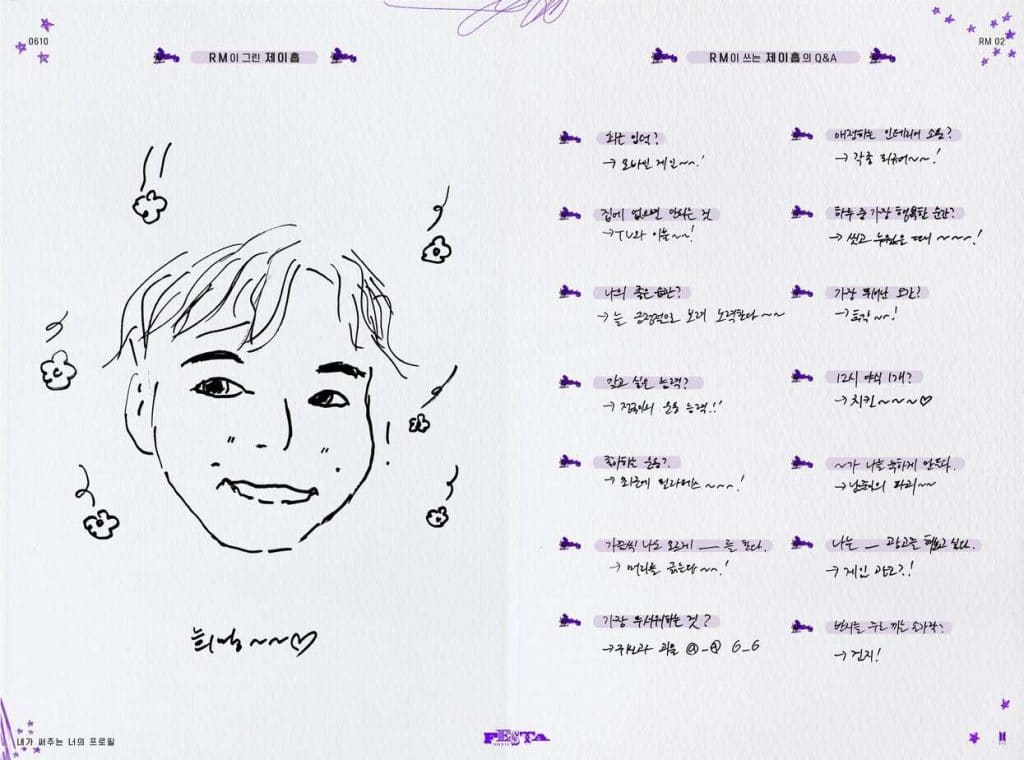 0610
RM이 그린 제이홉
희망~~♡
내가 써주는 너의 프로필
RM 02
RM이 쓰는 제이홉의 Q&A
최근 입덕?
→ 온라인 게임~~!
집에 없으면 안되는 것
→ TV와 이불~~!
나의 좋은 습관?
→ 늘 긍정적으로 보려 노력한다~~
갖고 싶은 능력?
→ 정국이의 운동 능력!!
좋아하는 운동?
→ 최근에 필라테스~~~!
가끔씩 나도 모르게 __를 한다.
→ 머리를 긁는다~~!
가장 무서워하는 것?
→ 귀신과 괴물 @_@ 6_6
애정하는 인테리어 소품?
→ 각종 피규어~~!
하루 중 가장 행복한 순간?
→ 씻고 누웠을 때 ~~~~!
가장 뛰어난 오감?
→ 촉각~~!
12시 야식 1개?
→ 치킨~~~~♡
~가 나를 욱하게 만든다.
→ 남준이의 파괴~~
나는 __ 광고를 해보고 싶다.
→ 게임 광고?!
반지를 주로 끼는 손가락?
→ 검지!
FESTA